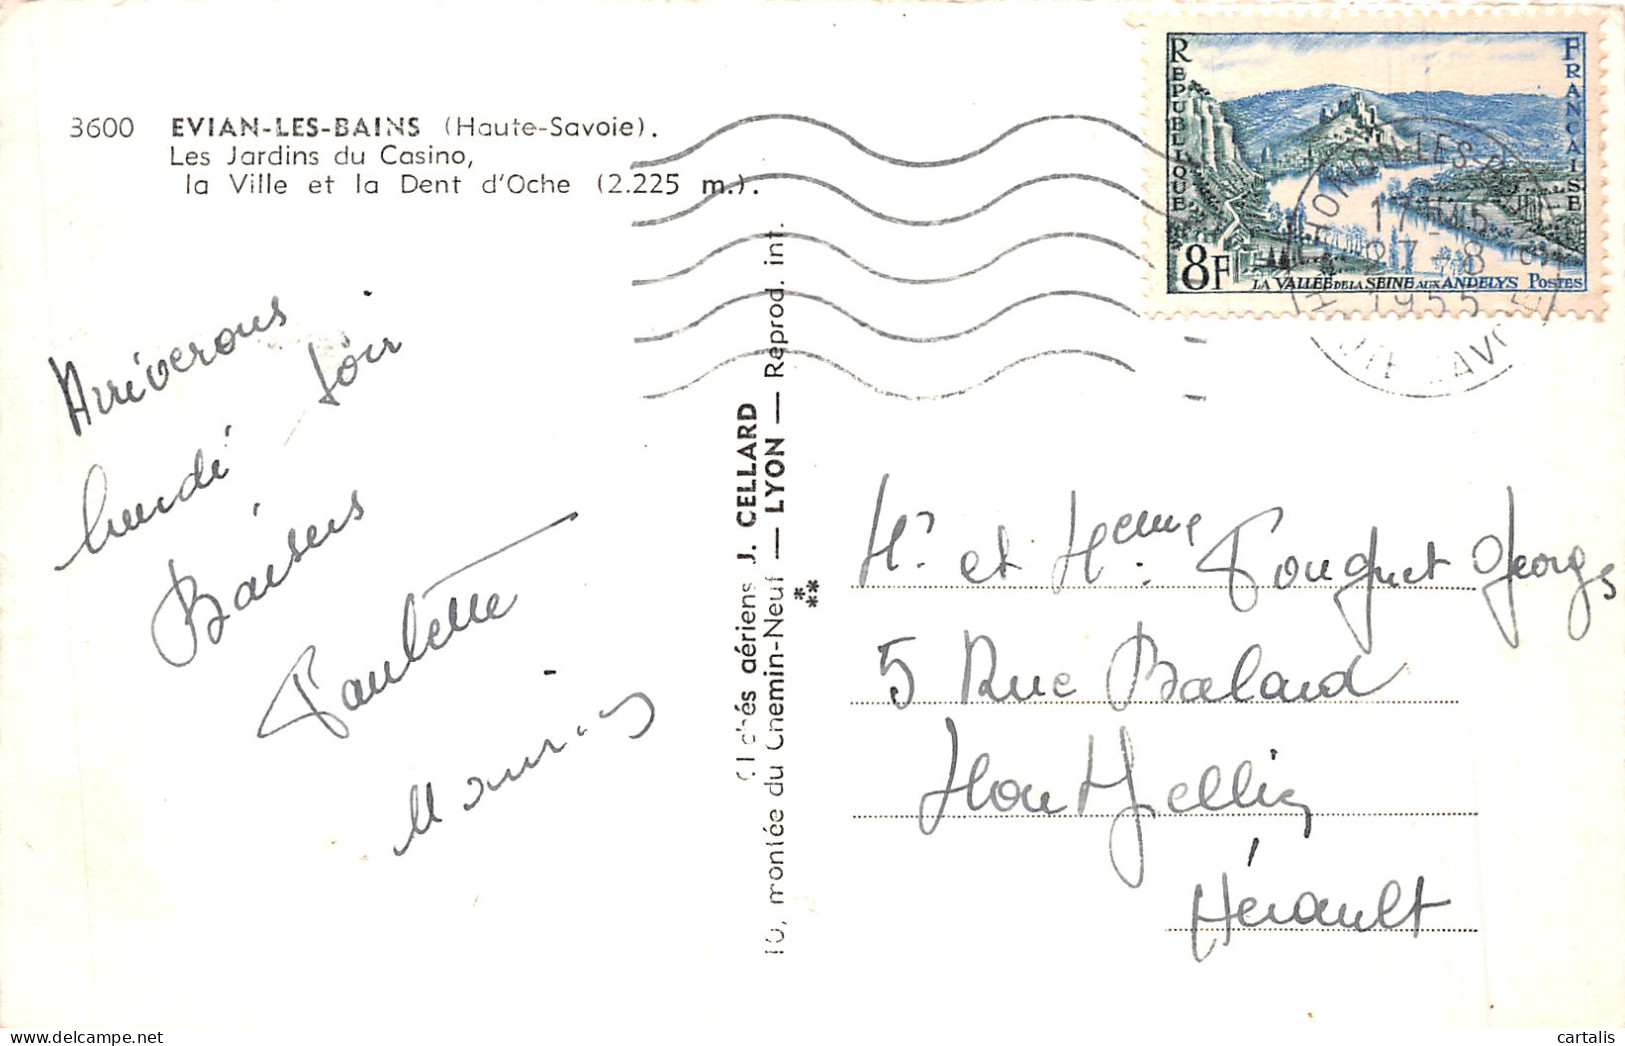 3600 EVIAN-LES-BAINS (Haute-Savoie).
Les Jardins du Casino,
la Ville et la Dent d'Oche (2.225 m.).
RÉPUBLIQUE
FRANÇAISE
8F
LA VALLÉE DE LA SEINE AUX ANDELYS POSTES
THONON-LES-BAINS
17H45
27-8
1955
HTE SAVOIE
Arriverons
lundi soir
Baisers
Paulette
Maurice
Clichés aériens J. CELLARD
10, montée du Chemin-Neuf — LYON — Reprod. int.
Mr. et Mme Fouquet Georges
5 Rue Balard
Montpellier
Hérault
cartalis